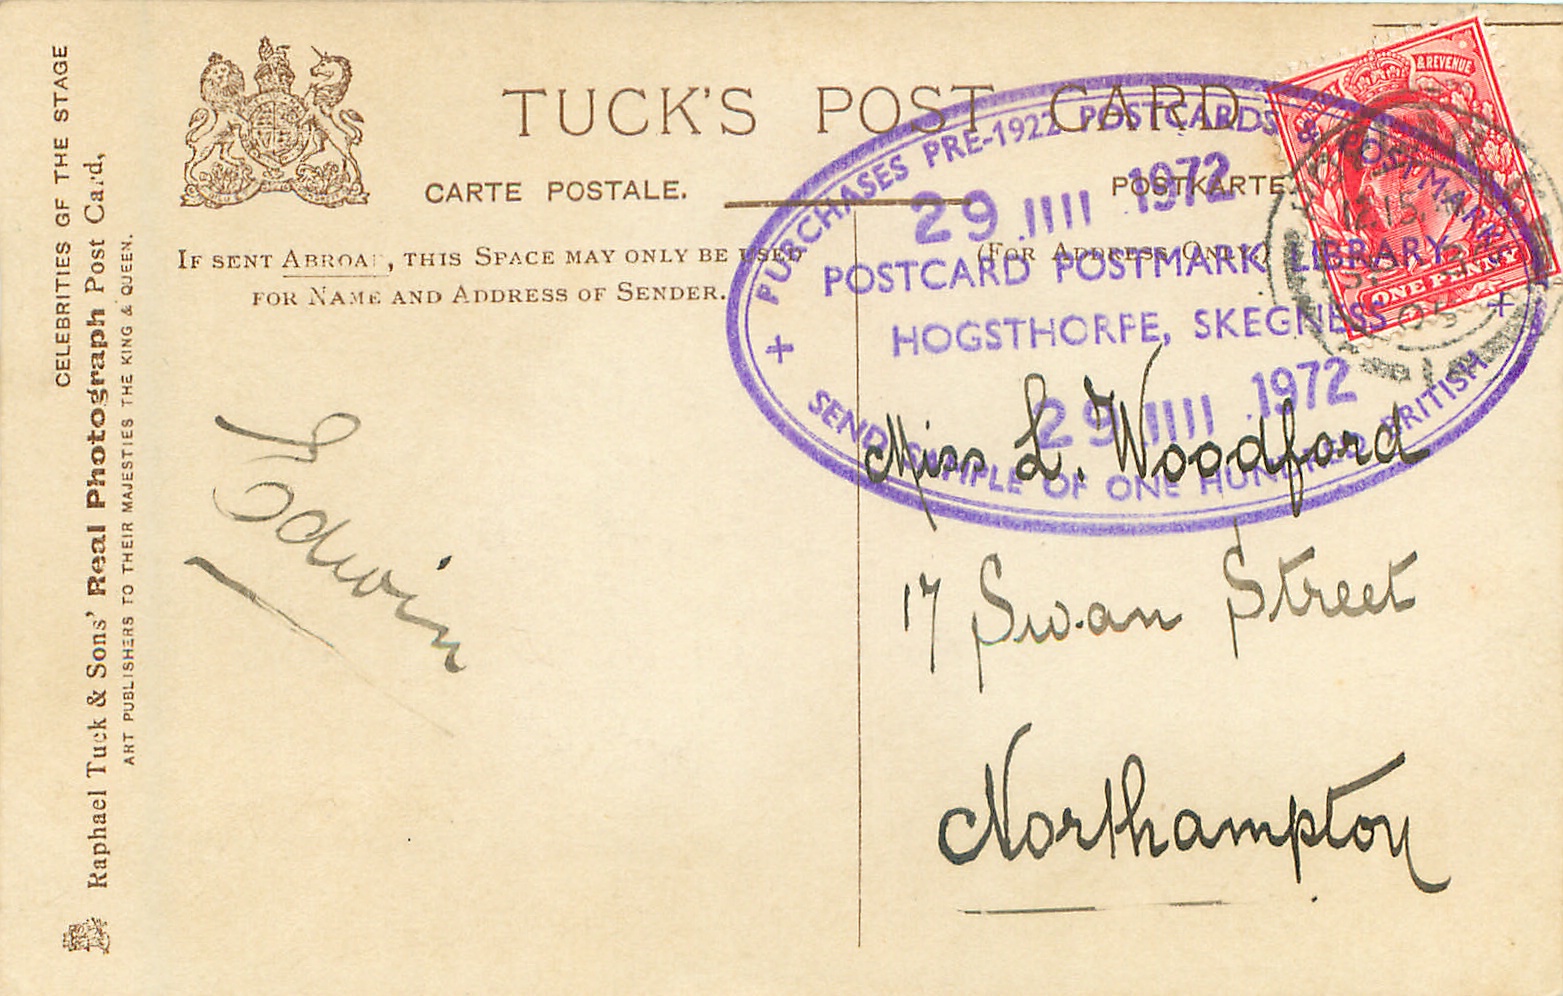 CELEBRITIES OF THE STAGE
Raphael Tuck & Sons' Real Photograph Post Card,
ART PUBLISHERS TO THEIR MAJESTIES THE KING & QUEEN.
TUCK'S POST CARD
CARTE POSTALE.
POSTKARTE.
IF SENT ABROAD, THIS SPACE MAY ONLY BE USED
FOR NAME AND ADDRESS OF SENDER.
(FOR ADDRESS ONLY)
& REVENUE
ONE PENNY
12.15
05
+ PURCHASES PRE-1922 POSTCARDS & POSTMARKS +
29 1972
POSTCARD POSTMARK LIBRARY
HOGSTHORPE, SKEGNESS
29 1972
SEND SAMPLE OF ONE HUNDRED BRITISH
Edwin
Miss L. Woodford
17 Swan Street
Northampton